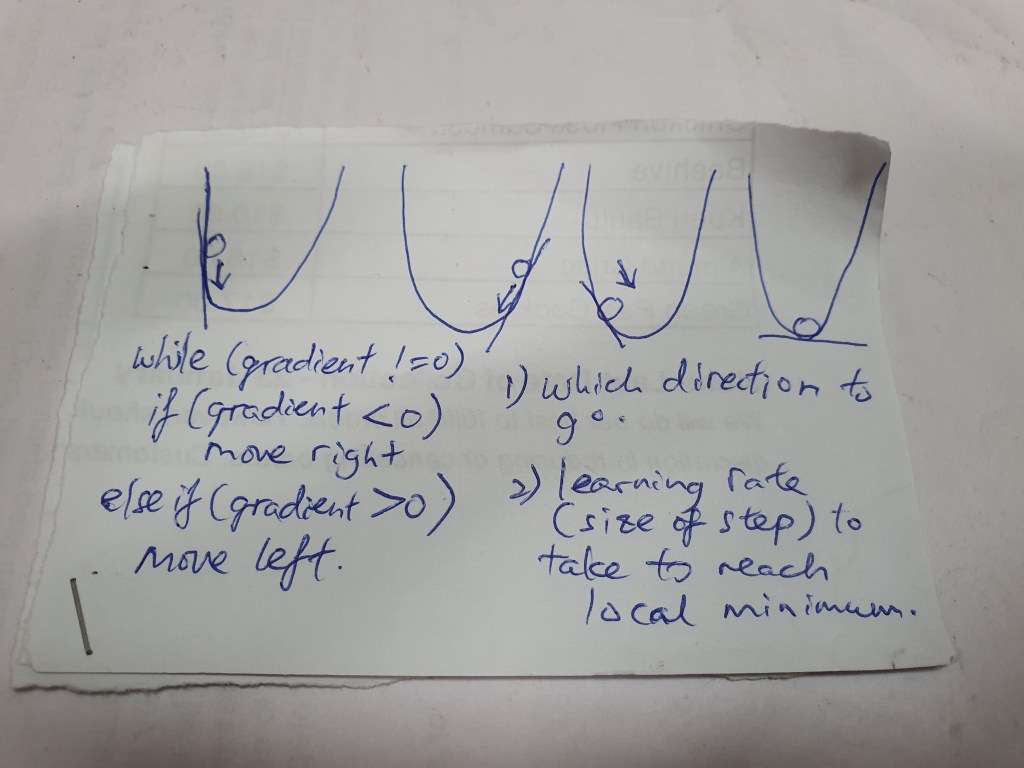 while (gradient != 0)
if (gradient < 0)
move right
else if (gradient > 0)
move left.
1) which direction to
go.
2) learning rate
(size of step) to
take to reach
local minimum.